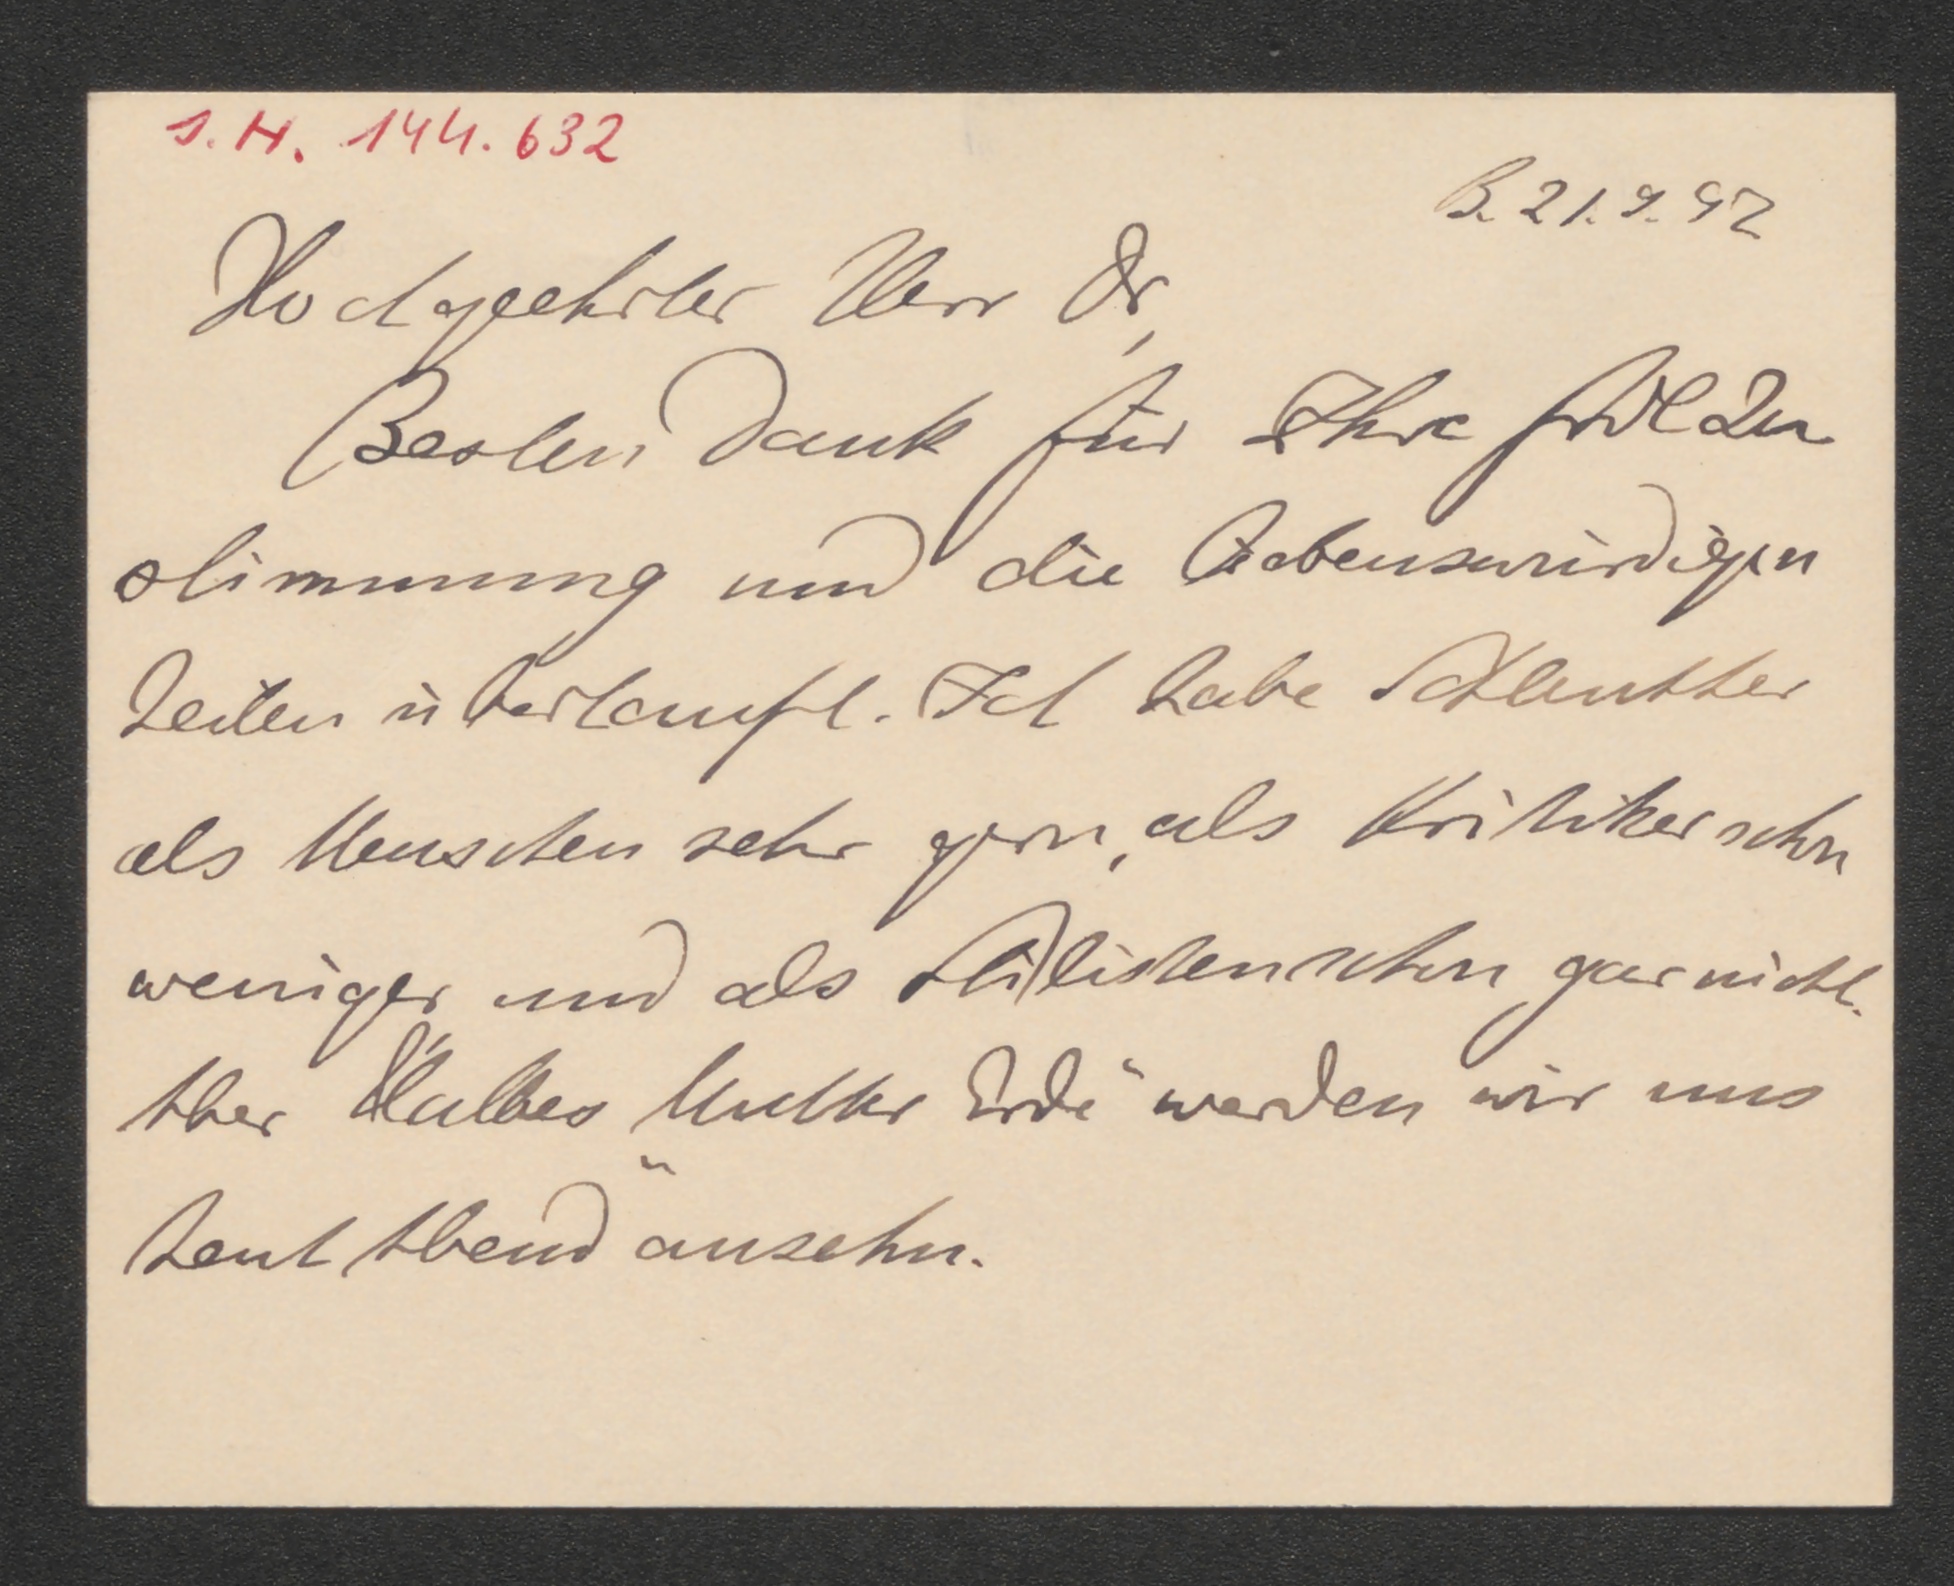 I.N. 144.632
B. 21.9.97
Hochgeehrter Herr Dr,
Besten Dank für Ihre frdl Zu
stimmung und die liebenswürdigen
Zeilen überhaupt. Ich habe Schlenther
als Menschen sehr gern, als Kritiker schon
weniger und als Stilisten schon gar nicht.
Aber Halbes "Mutter Erde" werden wir uns
heut Abend ansehn.